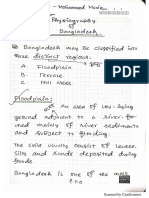 Mohammad
Physiography
of
Bangladesh
Bangladesh may be classified into
three distinct regions:
A. Floodplain
B. Terrace.
C. Hill
Floodplain:
An area of low-lying
ground adjacent to a river
formed mainly of river sediments
and subject to flooding.
The soils usually consist of
silts and sands deposited during
floods.
Bangladesh is one of the most
Scanned by CamScanner